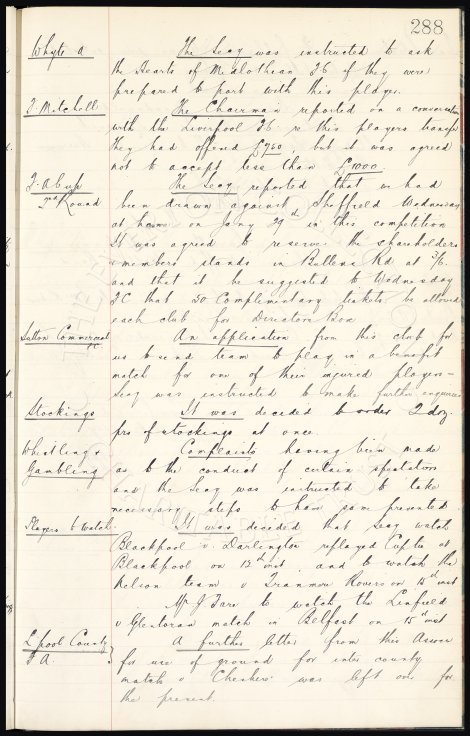 288
Whyte a The Secy was instructed to ask
the Hearts of Midlothian FC if they were
prepared to part with this player.
F. Mitchell The Chairman reported on a conversation
with the Liverpool FC re this players transfer
they had offered £750, but it was agreed
not to accept less than £1000
F. A Cup The Secy reported that we had
2nd Round been drawn against Sheffield Wednesday
at home on Jany 29th in this competition
It was agreed to reserve the shareholders
& members stands in Bullens Rd at 3/6
and that it be suggested to Wednesday
FC that 30 Complimentary tickets be allowed
each club for Directors Box
Sutton Commercial An application from this club for
us to send team to play in a benefit
match for one of their injured players –
Secy was instructed to make further enquiries
Stockings It was decided to order 2 doz.
prs of stockings at once.
Whistling & Complaints having been made
Gambling as to the conduct of certain spectators
and the Secy was instructed to take
necessary steps to have same prevented
Players to watch It was decided that Secy watch
Blackpool v Darlington replayed Cup tie at
Blackpool on 12th inst. and to watch the
Nelson team v Tranmere Rovers on 15th inst
Mr J Fare to watch the Linfield
v Glentoran match in Belfast on 15th inst
L'pool County A further letter from this Assocn
F A. for use of ground for inter county
match v Cheshire was left over for
the present.